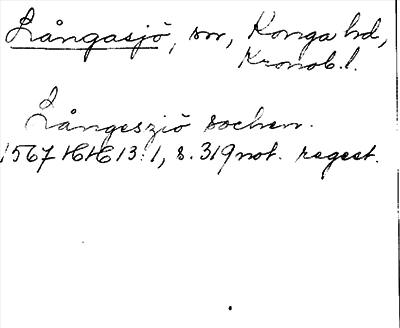 Långasjö, sn, Konga hd,
Kronob. l.
Långesziö sochen.
1567 HH 13:1, s. 319 not. regest.